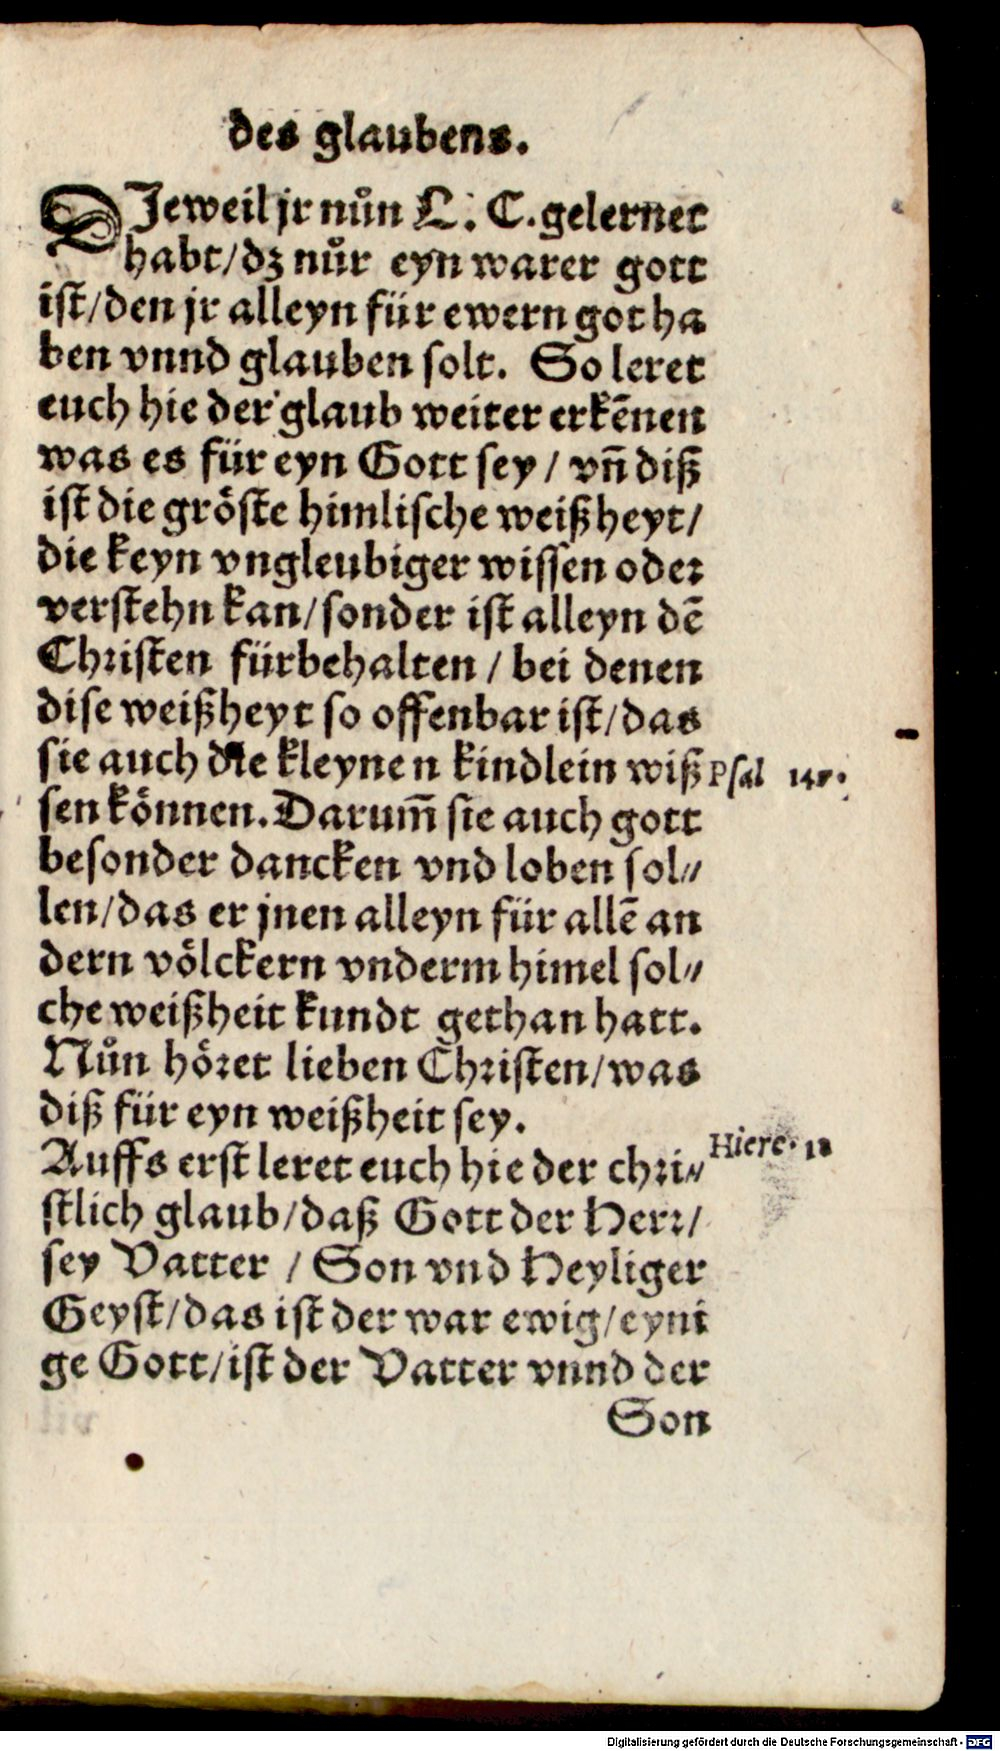 des glaubens.
DJeweil jr nůn L. C. gelernet
habt/dz nůr eyn warer gott
ist/den jr alleyn für ewern got ha
ben vnnd glauben solt. So leret
euch hie der glaub weiter erkēnen
was es für eyn Gott sey/ vn̄ diß
ist die gröste himlische weißheyt/
die keyn vngleubiger wissen oder
verstehn kan/sonder ist alleyn dē
Christen fürbehalten / bei denen
dise weißheyt so offenbar ist/das
sie auch die kleynen kindlein wiß Psal
sen können. Darum̄ sie auch gott
besonder dancken vnd loben sol⸗
len/das er jnen alleyn für allē an
dern völckern vnderm himel sol⸗
che weißheit kundt gethan hatt.
Nůn höret lieben Christen/was
diß für eyn weißheit sey.
Auffs erst leret euch hie der chri⸗ Hiere. 18
stlich glaub/daß Gott der Herr/
sey Vatter / Son vnd Heyliger
Geyst/das ist der war ewig/eyni
ge Gott/ist der Vatter vnnd der
Son
Digitalisierung gefördert durch die Deutsche Forschungsgemeinschaft - DFG